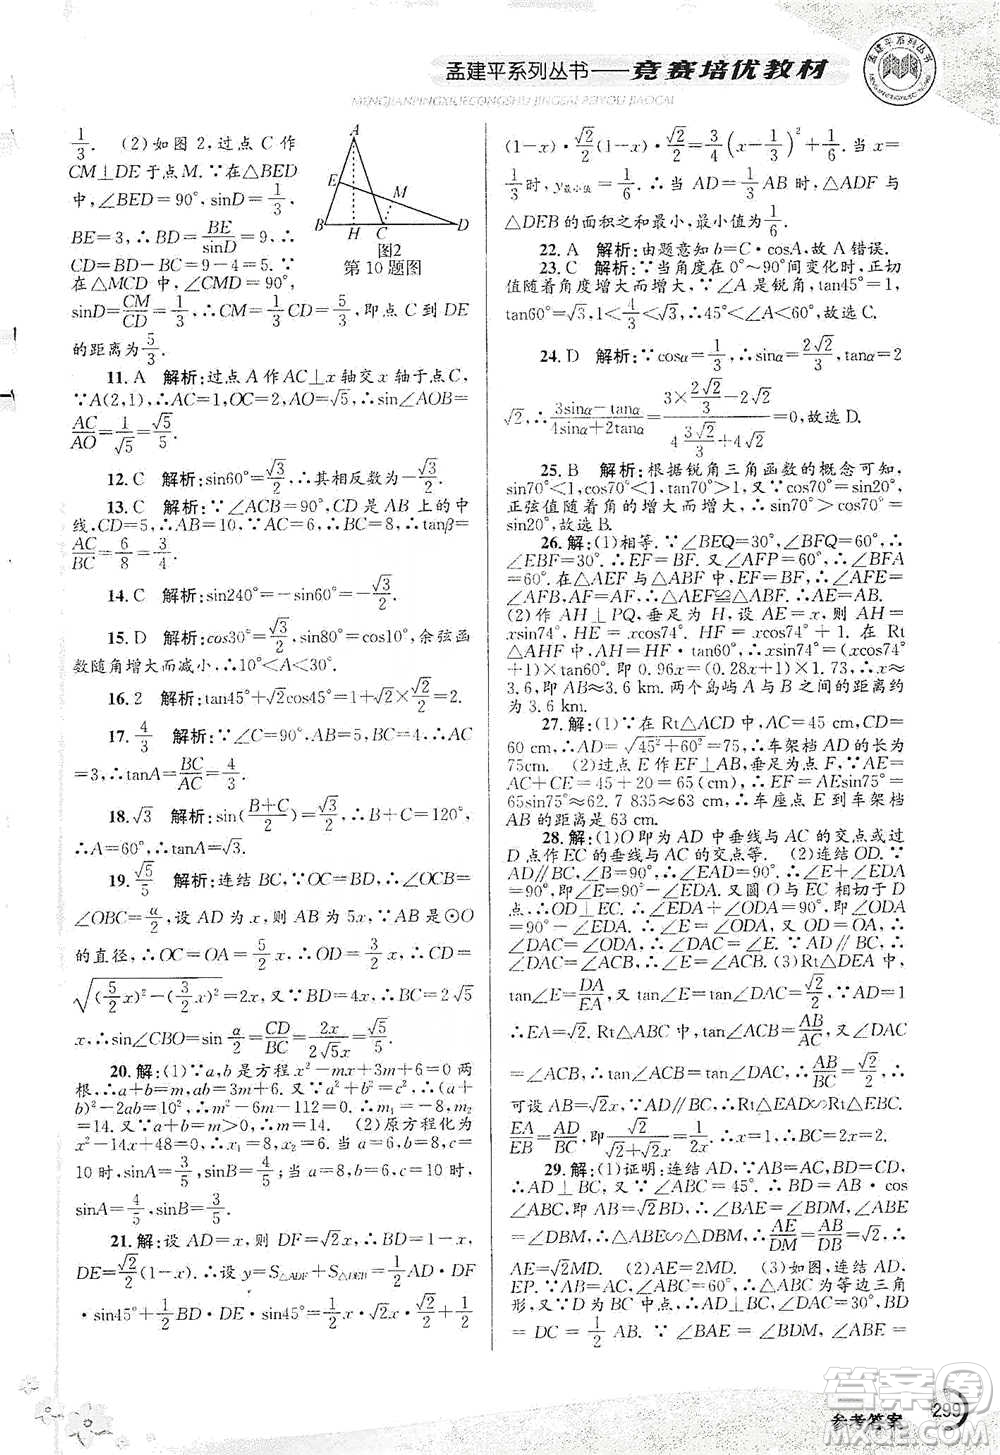 孟建平系列丛书——竞赛培优教材
MENGJIANPINGXILIECONGSHU JINGSAI PEIYOU JIAOCAI
1/3. (2)如图 2,过点 C 作
CM⊥DE 于点 M.∵在△BED
中,∠BED=90°,sinD=1/3,
BE=3,∴BD=BE/sinD=9,∴
CD=BD-BC=9-4=5.∵
在△MCD 中,∠CMD=90°,
A
E
M
B H C D
图2
第 10 题图
sinD=CM/CD=1/3,∴CM=1/3CD=5/3,即点 C 到 DE
的距离为5/3.
11. A 解析:过点 A 作 AC⊥x 轴交 x 轴于点 C,
∵A(2,1),∴AC=1,OC=2,AO=√5,∴sin∠AOB=
AC/AO=1/√5=√5/5.
12. C 解析:sin60°=√3/2,∴其相反数为-√3/2.
13. C 解析:∵∠ACB=90°,CD 是 AB 上的中
线,CD=5,∴AB=10,∵AC=6,∴BC=8,∴tanβ=
AC/BC=6/8=3/4.
14. C 解析:sin240°=-sin60°=-√3/2.
15. D 解析:cos30°=√3/2,sin80°=cos10°,余弦函
数随角增大而减小,∴10°<A<30°.
16. 2 解析:tan45°+√2cos45°=1+√2×√2/2=2.
17. 4/3 解析:∵∠C=90°,AB=5,BC=4,∴AC
=3,∴tanA=BC/AC=4/3.
18. √3 解析:sin(B+C)/2=√3/2,∴B+C=120°,
∴A=60°,∴tanA=√3.
19. √5/5 解析:连结 BC,∵OB=OC,∴∠OCB=
∠OBC=α/2,设 OD 为 x,则 BD 为 5x,∵AB 是⊙O
的直径,∴OC=OA=5/2x,∴OD=3/2x,∴CD=
√((5/2x)²-(3/2x)²)=2x,又∵BD=4x,∴BC=2√5
x,∴sin∠CBO=sinα/2=CD/BC=2x/2√5x=√5/5.
20. 解:(1)∵a,b 是方程 x²-mx+3m+6=0 两
根,∴a+b=m,ab=3m+6.又∵a²+b²=c²,∴(a+
b)²-2ab=10²,∴m²-6m-112=0,∴m₁=-8,m₂
=14.又∵a+b=m>0,∴m=14. (2)原方程化为
x²-14x+48=0,∴x₁=8,x₂=6.当 a=6,b=8,c=
10 时,sinA=3/5,sinB=4/5;当 a=8,b=6,c=10 时,
sinA=4/5,sinB=3/5.
21. 解:设 AD=x,则 DF=√2x,BD=1-x,
DE=√2/2(1-x),∴设 y=S△ADF+S△DEB=1/2AD·DF
·sin45°+1/2BD·DE·sin45°=1/2x·√2x·√2/2+1/2
(1-x)·√2/2(1-x)·√2/2=3/4(x-1/3)²+1/6.当 x=
1/3时,y最小值=1/6,∴当 AD=1/3AB 时,△ADF 与
△DEB 的面积之和最小,最小值为1/6.
22. A 解析:由题意知 b=c·cosA,故 A 错误.
23. C 解析:∵当角度在 0°~90°间变化时,正切
值随着角度增大而增大,∵∠A 是锐角,tan45°=1,
tan60°=√3,1<4/3<√3,∴45°<∠A<60°,故选 C.
24. D 解析:∵cosα=1/3,∴sinα=2√2/3,tanα=2
√2,∴(3sinα-tanα)/(4sinα+2tanα)=(3×2√2/3-2√2)/(4√2/3+4√2)=0,故选 D.
25. B 解析:根据锐角三角函数的概念可知,
sin70°<1,cos70°<1,tan70°>1,又∵cos70°=sin20°,
正弦值随着角的增大而增大,∴sin70°>cos70°=
sin20°,故选 B.
26. 解:(1)相等.∵∠BEQ=30°,∠BFQ=60°,∴
∠EBF=30°.∴EF=BF.又∠AFP=60°,∴∠BFA
=60°.在△AEF 与△ABF 中,EF=BF,∴∠AFE=
∠AFB,AF=AF,∴△AEF≌△ABF.∴AE=AB.
(2)作 AH⊥PQ,垂足为 H,设 AE=x,则 AH=
xsin74°,HE=xcos74°.HF=xcos74°+1.在 Rt
△AHF 中,AH=HF·tan60°,∴xsin74°=(xcos74°
+1)·tan60°.即 0.96x=(0.28x+1)×1.73,∴x≈
3.6,即 AB≈3.6 km.两个岛屿 A 与 B 之间的距离约
为 3.6 km.
27. 解:(1)∵在 Rt△ACD 中,AC=45 cm,CD=
60 cm,∴AD=√(45²+60²)=75,∴车架档 AD 的长为
75cm. (2)过点 E 作 EF⊥AB,垂足为点 F,∵AE=
AC+CE=45+20=65(cm),∴EF=AEsin75°=
65sin75°≈62.7 835≈63(cm),∴车座点 E 到车架档
AB 的距离是 63 cm.
28. 解:(1)O 即为 AD 中垂线与 AC 的交点或过
D 点作 EC 的垂线与 AC 的交点等. (2)连结 OD.∵
AD∥BC,∠ABC=90°,∴∠EAD=90°.∴∠E+
∠EDA=90°,即∠E=90°-∠EDA.又圆 O 与 EC 相切于 D
点,∴OD⊥EC.∴∠EDA+∠ODA=90°,即∠ODA
=90°-∠EDA.∴∠E=∠ODA,又∵OD=OA,∴
∠DAC=∠ODA,∴∠DAC=∠E.∵AD∥BC,∴
∠DAC=∠ACB,∴∠E=∠ACB. (3)Rt△DEA 中,
tan∠E=DA/EA,∵tan∠E=tan∠DAC=√2/2,∵AD=1
∴EA=√2.Rt△ABC 中,tan∠ACB=AB/BC,又∠DAC
=∠ACB,∴tan∠ACB=tan∠DAC=√2/2,∴AB/BC=√2/2,∴
可设 AB=√2x,BC=2x,∵Rt△EAD∽Rt△EBC.
EA/EB=AD/BC,即√2/(√2+√2x)=1/2x,∴x=1,∴BC=2x=2.
29. 解:(1)证明:连结 AD.∵AB=AC,BD=CD,
∴AD⊥BC.又∵∠ABC=45°,∴BD=AB·cos
∠ABC,即 AB=√2BD.∵∠BAE=∠BDM,
∠ABE=∠DBM,∴△ABE∽△DBM,∴AE/DM=AB/DB=√2,∴
AE=√2MD. (2)AE=2MD. (3)如图,连结 AD,
EP.∵AB=AC,∠ABC=60°,∴△ABC 为等边三角
形,又∵D 为 BC 中点,∴AD⊥BC,∠DAC=30°,BD
=DC=1/2AB.∵∠BAE=∠BDM,∠ABE=
参考答案 299
答案圈